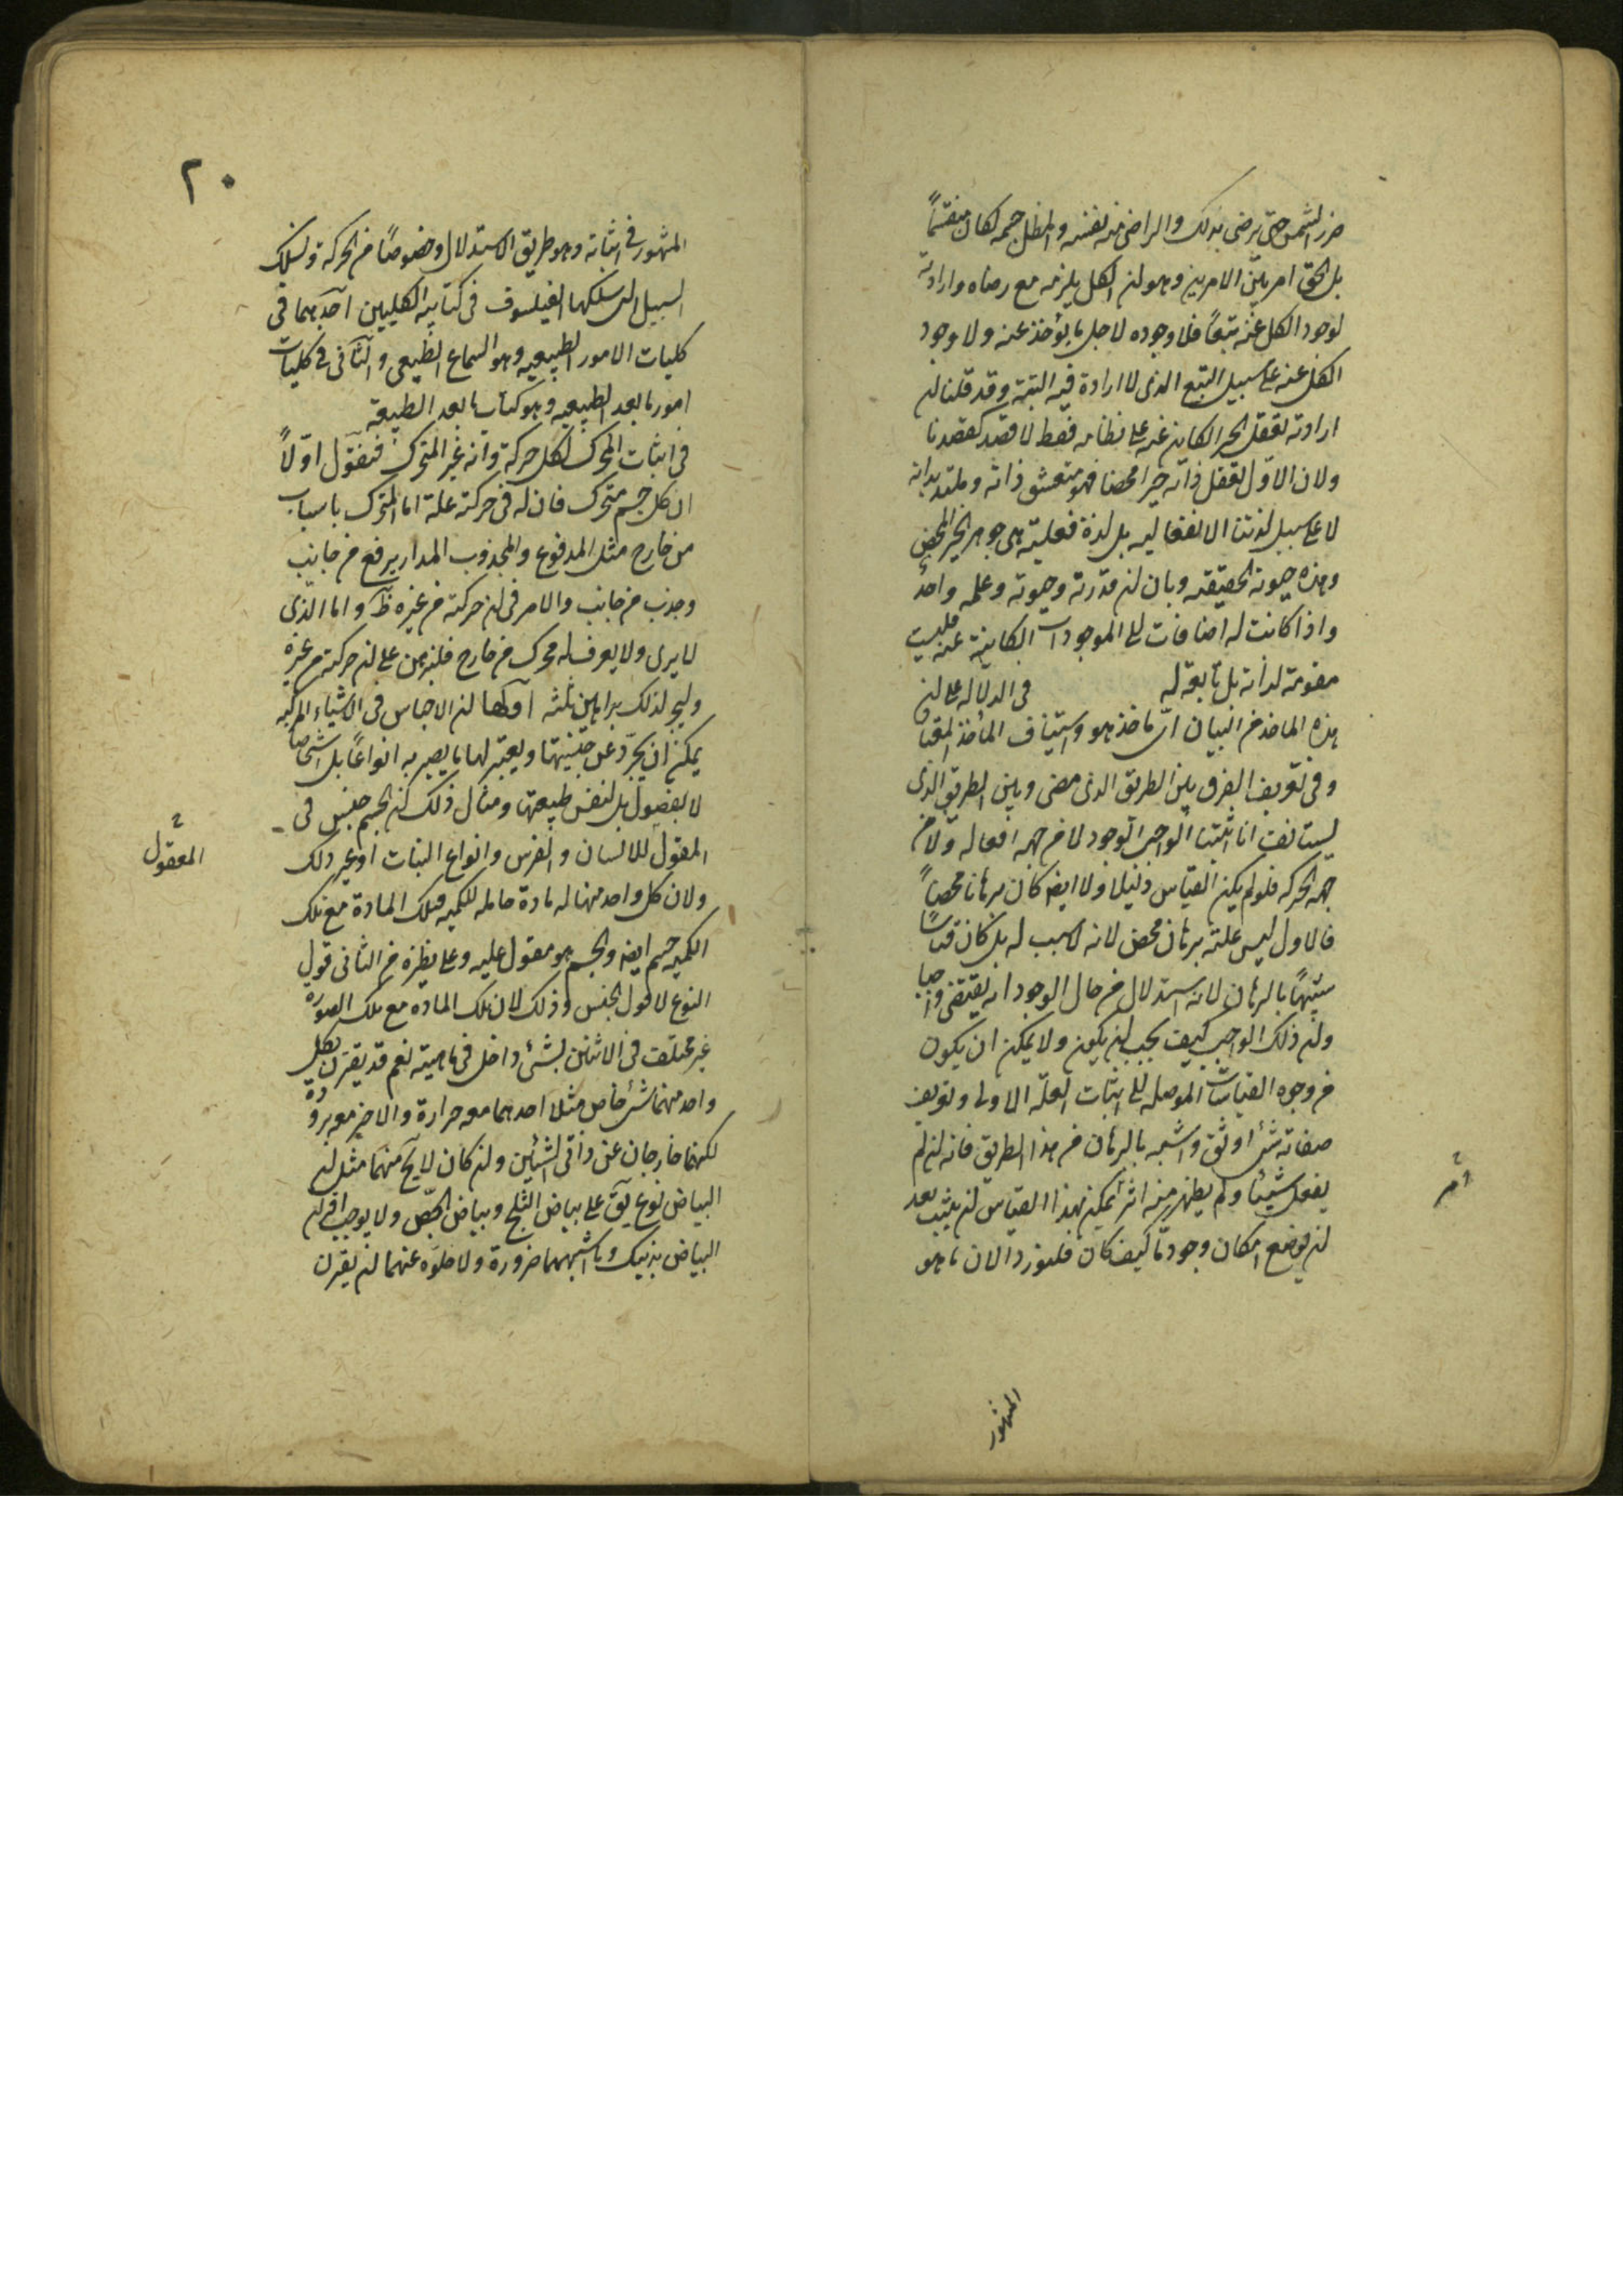 ضرر الشمس حتى يرضى بذلك والراضى منه نفسه والمظل جسمه لكان منقسماً
بل الحق امر بين الامرين وهو ان الكل يلزمه مع رضاه وارادته
لوجود الكل عنه تبعاً فلا وجوده لاجل ما يؤخذ عنه ولا وجود
الكل عنه على سبيل التبع الذى لا ارادة فيه البتة وقد قلنا ان
ارادته تعقل الخير الكاين عنه على نظامه فقط لا قصد كقصدنا
ولان الاول تعقل ذاته خيرا محضا فهو متعشق ذاته وملتذ بذاته
لا على سبيل لذتنا الانفعاليه بل لذة فعليته هى جوهر الخير المحض
وهذه حيوته الحقيقيه وبان ان قدرته وحيوته وعلمه واحد
واذا كانت له اضافات الى الموجودات الكاينة عنه فليست
مقومة لذاته بل تابعة له فى الدلالة على ان
هذه الماخذ من البيان اى ماخذ هو واستيناف المأخذ المعتاد
وفى تعريف الفرق بين الطريق الذى مضى وبين الطريق الذى
يستانف انا اثبتنا الواجب الوجود لا من جهه افعاله ولا من
جهه الحركه فلم يكن القياس دليلا ولا ايضا كان برهانا محضاً
فالاول ليس عليه برهان محض لانه لا سبب له بل كان قياساً
شبيهاً بالبرهان لانه استدلال من حال الوجود انه يقتضى واجبا
وان ذلك الواجب كيف يجب ان يكون ولا يمكن ان يكون
من وجوه القياسات الموصله الى اثبات العلة الاولى وتعريف
صفاته شئ اوثق واشبه بالبرهان من هذا الطريق فانه ان لم
يفعل شيئا ولم يظهر منه اثر يمكن بهذا القياس ان يثبت بعد
ان يوضع امكان وجود ما كيف كان فلنورد الان ما هو
المشهور
٢٠
المشهور فى اثباته وهو طريق الاستدلال وخصوصاً من الحركة ونسلك
السبيل التى سلكها الفيلسوف فى كتابيه الكليين احدهما فى
كليات الامور الطبيعيه وهو السماع الطبيعى والثانى فى كليات
امور ما بعد الطبيعيه وهو كتاب ما بعد الطبيعة
فى اثبات المحرك لكل حركة وانه غير المتحرك فنقول اولاً
ان كل جسم متحرك فان له فى حركته علة اما المتحرك باسباب
من خارج مثل المدفوع والمجذوب المدار يرفع من جانب
وجذب من جانب والامر فى ان حركته من غيره ظ واما الذى
لا يرى ولا يعرف له محرك من خارج فلنبرهن على ان حركته من غيره
ولنج لذلك براهين ثلثه اولها ان الاجناس فى الاشياء المركبه
يمكن ان يجرد عن جنسيتها ويعتبر لها ما يصير به انواعاً بل اشخاصاً
لا بفصول بل لنفس طبيعتها ومثال ذلك ان الجسم جنس فى
المقول للانسان والفرس وانواع النبات او غير ذلك
المعقول
ولان كل واحد منها له مادة حامله للكميه فتلك المادة مع تلك
الكميه جسم ايضا والجسم هو مقول عليه وعلى نظيره من الثانى قول
النوع لا قول الجنس وذلك لان تلك الماده مع تلك الصوره
غير مختلف فى الاثنين بشئ داخل فى ماهيته نعم قد يقترن بكل
واحد منهما شئ خاص مثلا احدهما معه حرارة والاخر معه برودة
لكنهما خارجان عن ذاتى الشيئين وان كان لا يخ منهما مثل ان
البياض نوع يق على بياض الثلج وبياض الجص ولا يوجب اقتران
البياض بذينك وما اشبههما ضرورة ولا خلوه عنهما ان يقترن